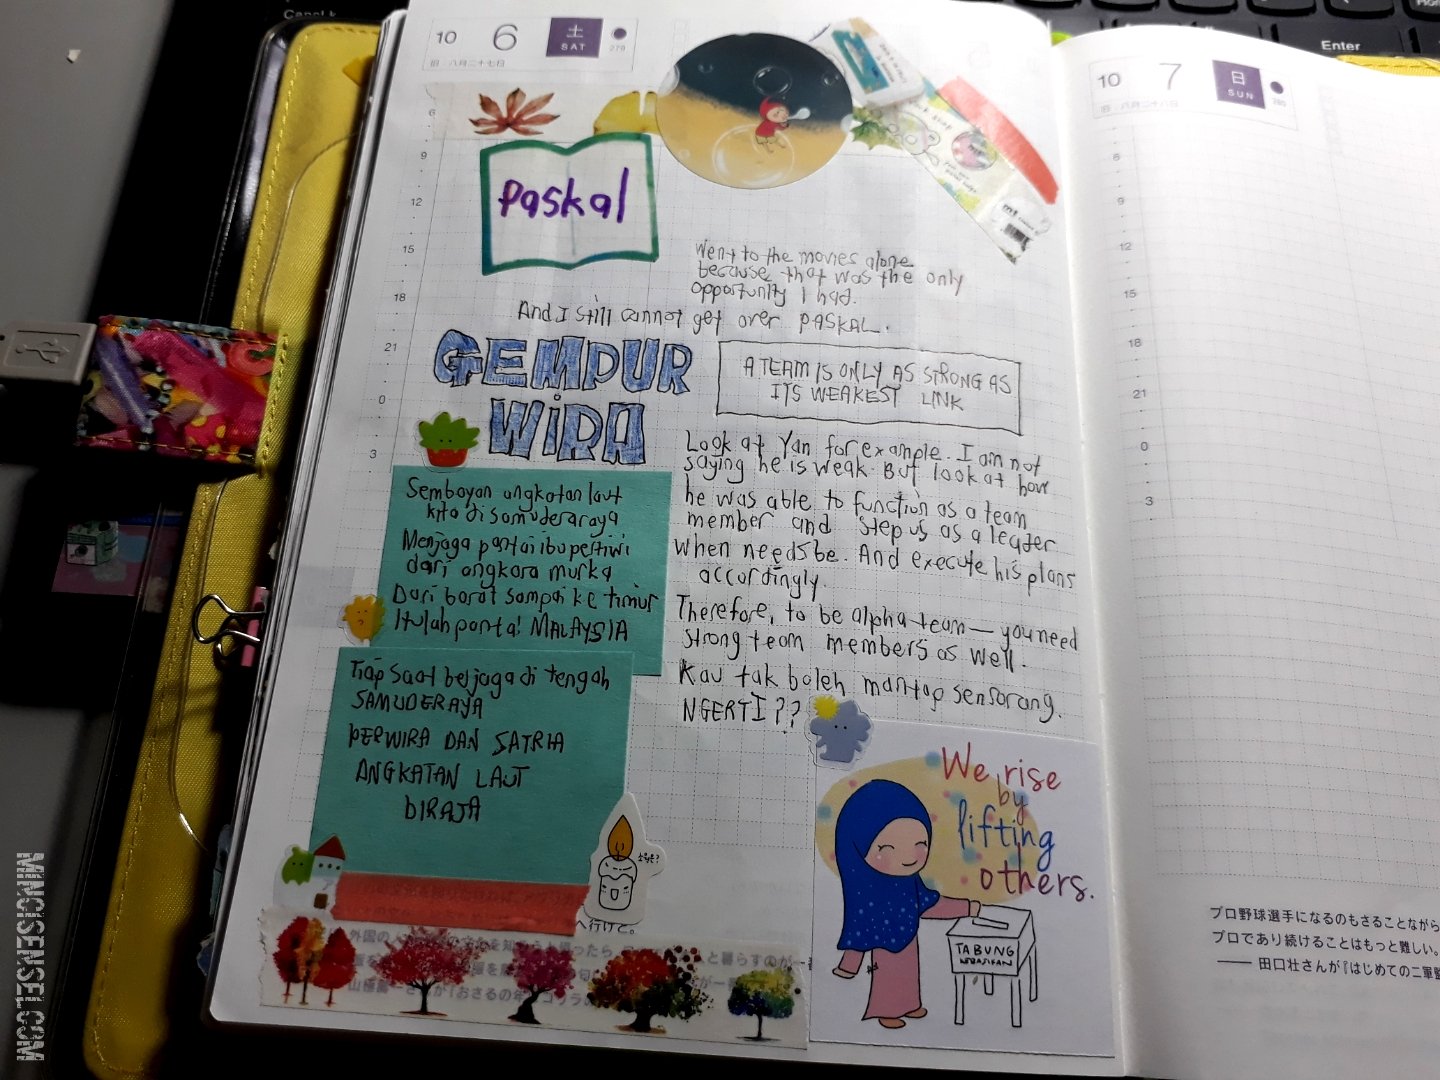 Enter
10 6 土 SAT 279
旧・八月二十七日
10 7 日 SUN 280
旧・八月二十八日
6
9
12
15
18
21
0
3
Paskal
mt
Went to the movies alone
because that was the only
opportunity I had.
And I still cannot get over PASKAL.
GEMPUR
WIRA
A TEAM IS ONLY AS STRONG AS
ITS WEAKEST LINK
Look at Yan for example. I am not
saying he is weak. But look at how
he was able to function as a team
member and step us as a leader
when needs be. And execute his plans
accordingly.
Therefore, to be alpha team — you need
strong team members as well.
Kau tak boleh mantap sensorang.
NGERTI??
Semboyan angkatan laut
kita di samuderaraya
Menjaga pantai ibu pertiwi
dari angkara murka
Dari barat sampai ke timur
Itulah pantai MALAYSIA
Tiap saat berjaga di tengah
SAMUDERAYA
PERWIRA DAN SATRIA
ANGKATAN LAUT
DIRAJA
We rise
by
lifting
others.
TABUNG
KEBAJIKAN
へ行けと。
6
9
12
15
18
21
0
3
プロ野球選手になるのもさることながら
プロであり続けることはもっと難しい。
—— 田口壮さんが『はじめての二軍監
MINCISENSEI.COM